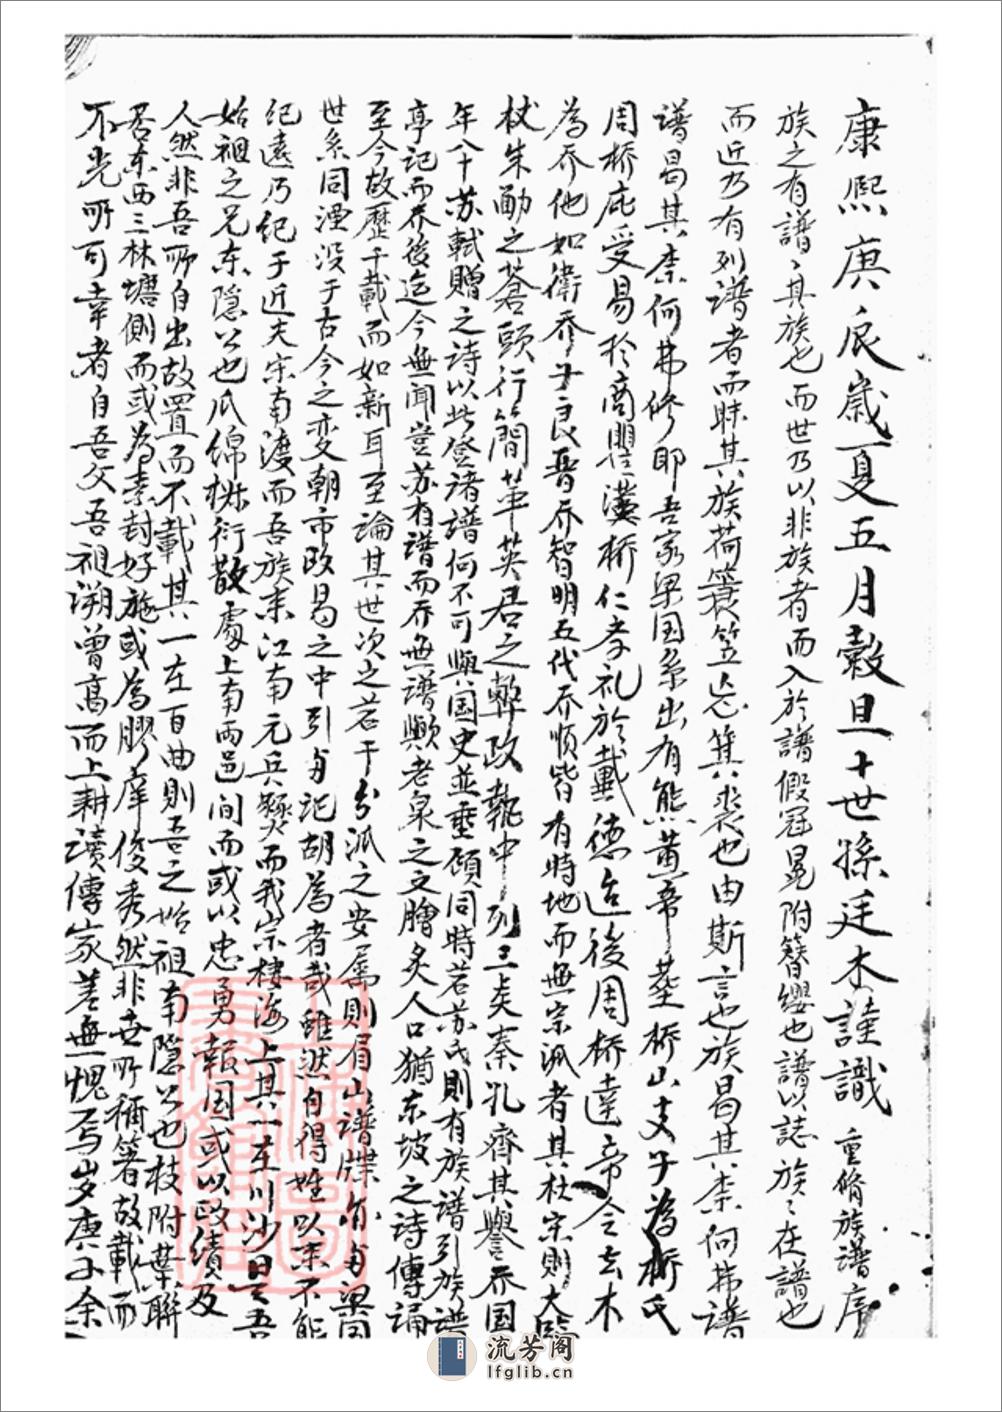 康熙庚辰歲夏五月穀旦十世孫廷木謹識 重脩族譜序
族之有譜譜其族也而世乃以非族者而入於譜假冠冕附簪纓也譜以誌族族在譜也
而近乃有列譜者而昧其族荷簑笠忘箕裘也由斯言也族曷其柰何弗譜
譜曷其柰何弗修耶吾家梁国系出有熊黄帝葬桥山支子為桥氏
周桥庇受易於商瞿漢桥仁孝礼於戴德迨後周桥逹帝命去木
為乔他如衛乔子良晋乔智明五代乔順皆有時地而無宗派者其杜宗則大
杖朱勔之蒼頭行簡革英君之弊政執中列三矣秦孔齊其譽乔国
年八十苏軾贈之詩以此登诸譜何不可與国史並垂顧同時若苏氏則有族譜引族譜
亭記而乔後迄今無聞豈苏有譜而乔無譜歟老泉之文膾炙人口猶东坡之诗傳诵
至今故歷千載而如新耳至論其世次之若干分派之安属則眉山譜牒有与梁国
世系同湮没于古今之变朝市改曷之中引与記胡為者哉雖然自得姓以来不能
纪遠乃纪于近夫宋南渡而吾族来江南元兵燹而我宗棲海上其一在川沙是吾
始祖之兄东隠公也瓜綿椒衍散處上南両邑间而或以忠勇報国或以政績及
人然非吾所自出故置而不載其一在百曲則吾之始祖南隠公也枝附葉聯
吾东西三林塘側而或為素封好施或為膠庠俊秀然非世所稱著故載而
不光所可幸者自吾父吾祖溯曾高而上耕讀傳家差無愧焉岁庚子余
流芳阁
lfglib.cn